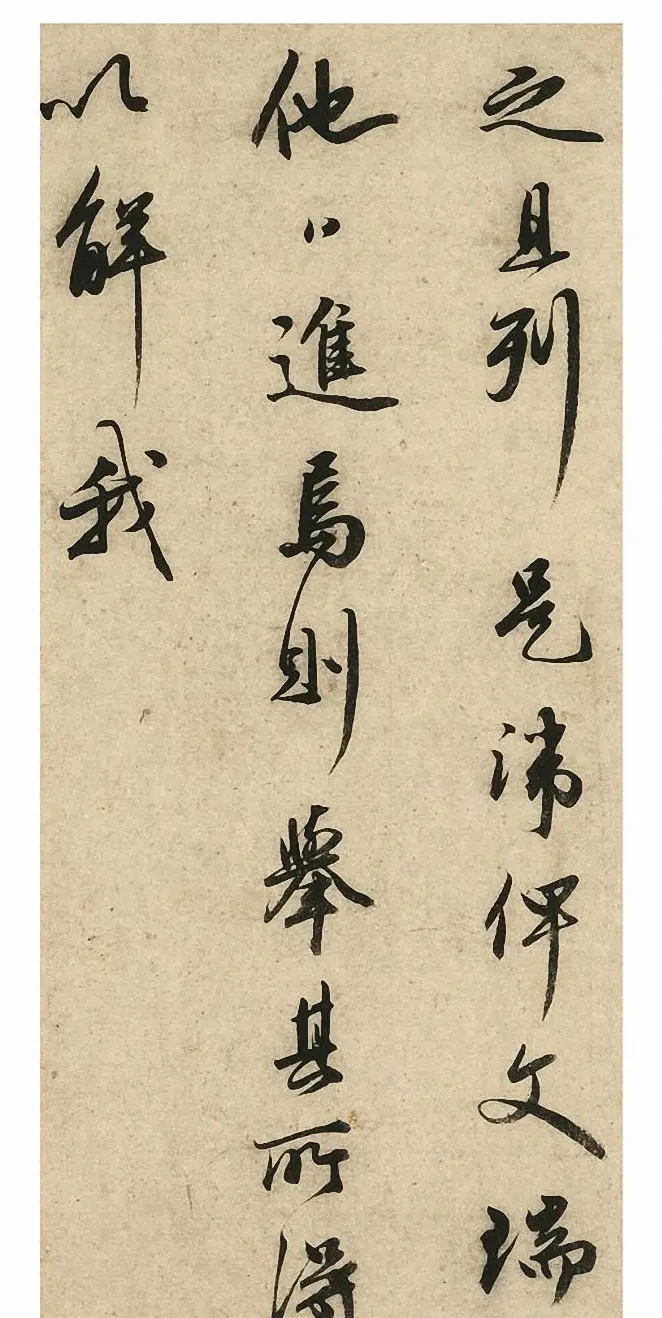 之且列是滯俾文瑞
他日進焉則舉其所得
以解我